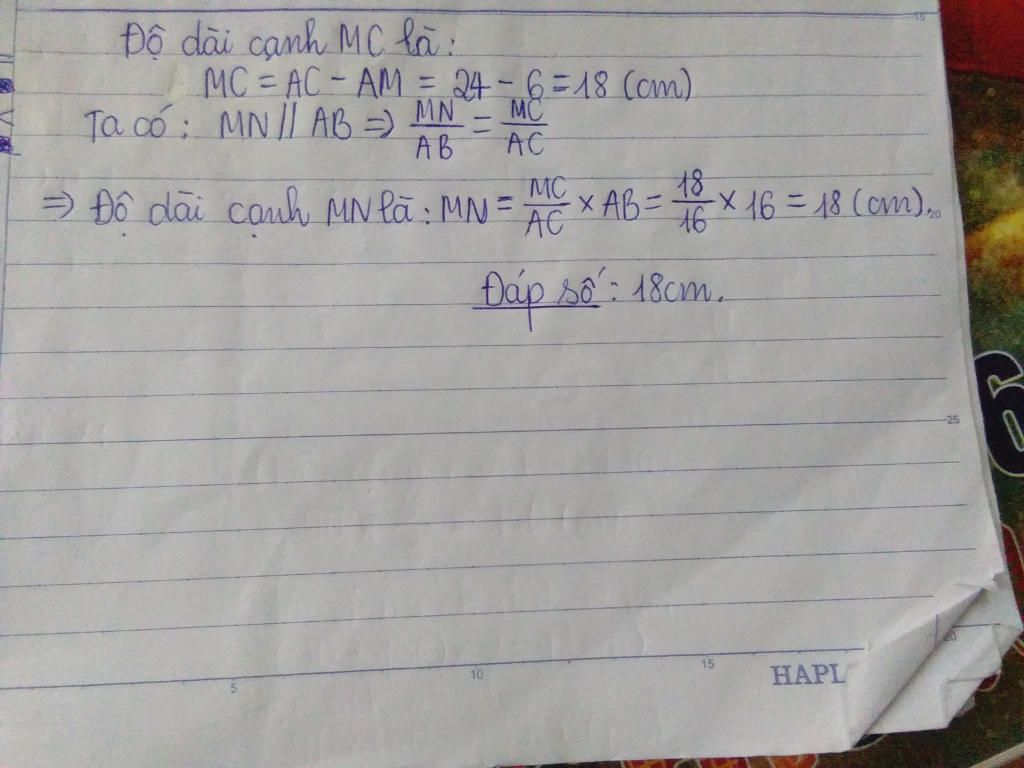 Độ dài cạnh MC là:
MC = AC - AM = 24 - 6 = 18 (cm)
Ta có: MN // AB => MN/AB = MC/AC
=> Độ dài cạnh MN là: MN = MC/AC × AB = 18/16 × 16 = 18 (cm).
Đáp số: 18cm.
15
20
25
5
10
15
20
HAPL